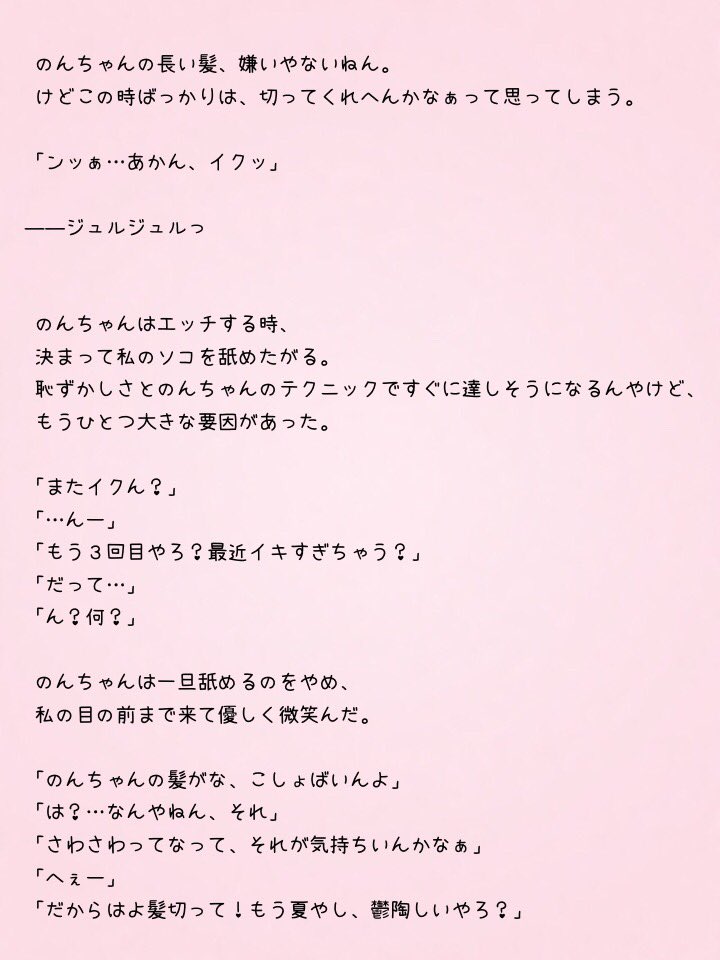 のんちゃんの長い髪、嫌いやないねん。
けどこの時ばっかりは、切ってくれへんかなぁって思ってしまう。
「ンッぁ…あかん、イクッ」
――ジュルジュルっ
のんちゃんはエッチする時、
決まって私のソコを舐めたがる。
恥ずかしさとのんちゃんのテクニックですぐに達しそうになるんやけど、
もうひとつ大きな要因があった。
「またイクん？」
「…んー」
「もう３回目やろ？最近イキすぎちゃう？」
「だって…」
「ん？何？」
のんちゃんは一旦舐めるのをやめ、
私の目の前まで来て優しく微笑んだ。
「のんちゃんの髪がな、こしょばいんよ」
「は？…なんやねん、それ」
「さわさわってなって、それが気持ちいんかなぁ」
「へぇー」
「だからはよ髪切って！もう夏やし、鬱陶しいやろ？」